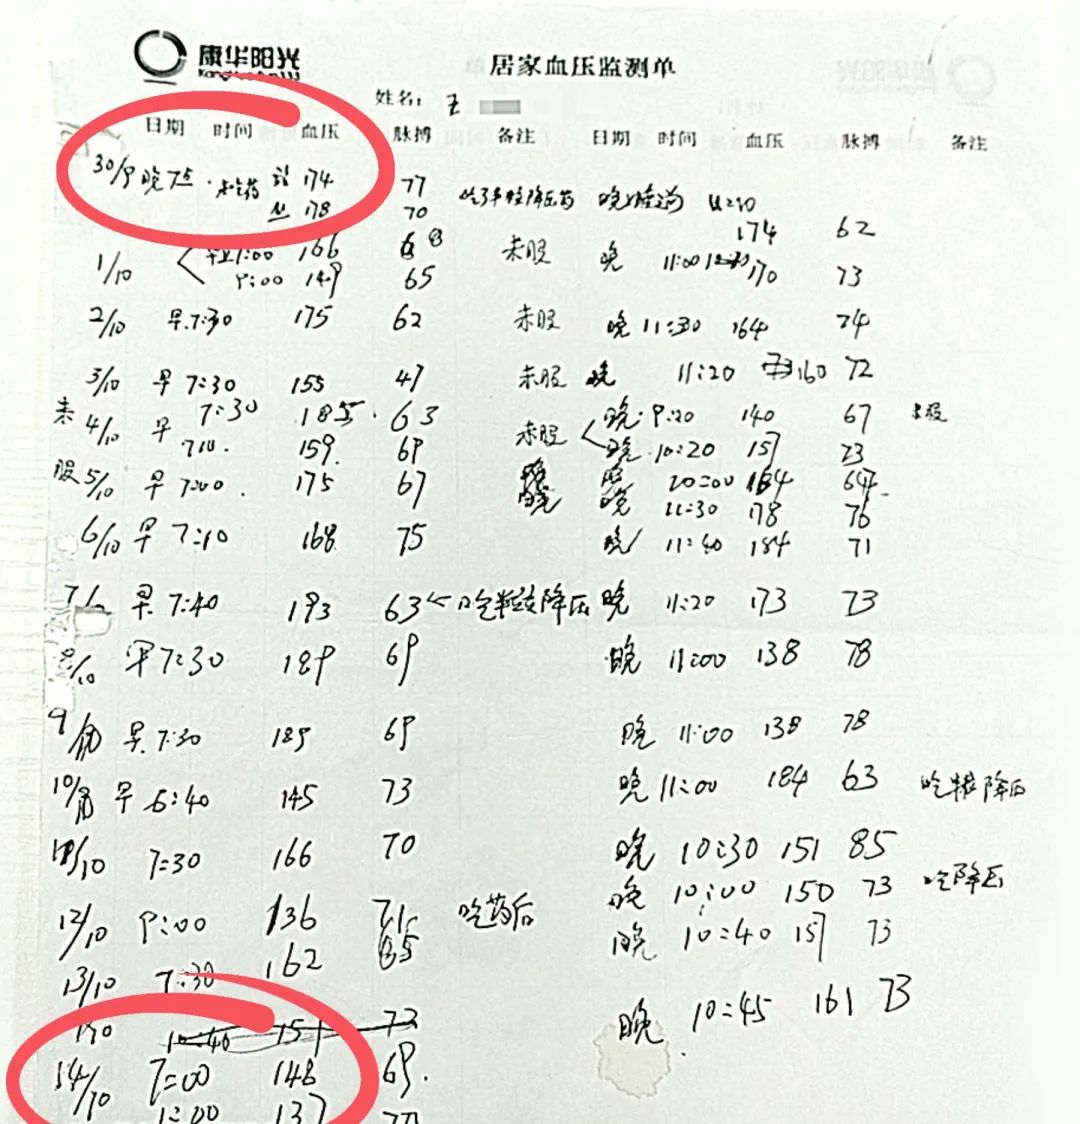 康华阳光
居家血压监测单
姓名: 王
日期 时间 血压 脉搏 备注 日期 时间 血压 脉搏 备注
30/9 晚7点 174 77
178 70
174 62
1/10 166 未服 晚 11:00 170 73
9:00 149 65
2/10 早 7:30 175 62 未服 晚 11:30 164 74
3/10 早 7:30 155 47 未服 晚 11:20 160 72
未 4/10 早 7:30 185 63 未服 晚 9:20 140 67 未服
159 69 晚 10:20 157 73
服 5/10 早 7:00 175 67 晚 20:00 184 64
晚 11:30 178 76
6/10 早 7:10 168 75 晚 11:40 184 71
早 7:40 193 63 晚 11:20 173 73
8/10 早 7:30 189 69 晚 11:00 138 78
9 早 7:30 189 69 晚 11:00 138 78
10/ 早 6:40 145 73 晚 11:00 184 63
7:30 166 70 晚 10:30 151 85
晚 10:00 150 73 吃降压
12/10 9:00 136 71 吃药后 晚 10:40 157 73
13/10 7:30 162 85
晚 10:45 161 73
10:40 151 72
14/10 7:00 146 69
137